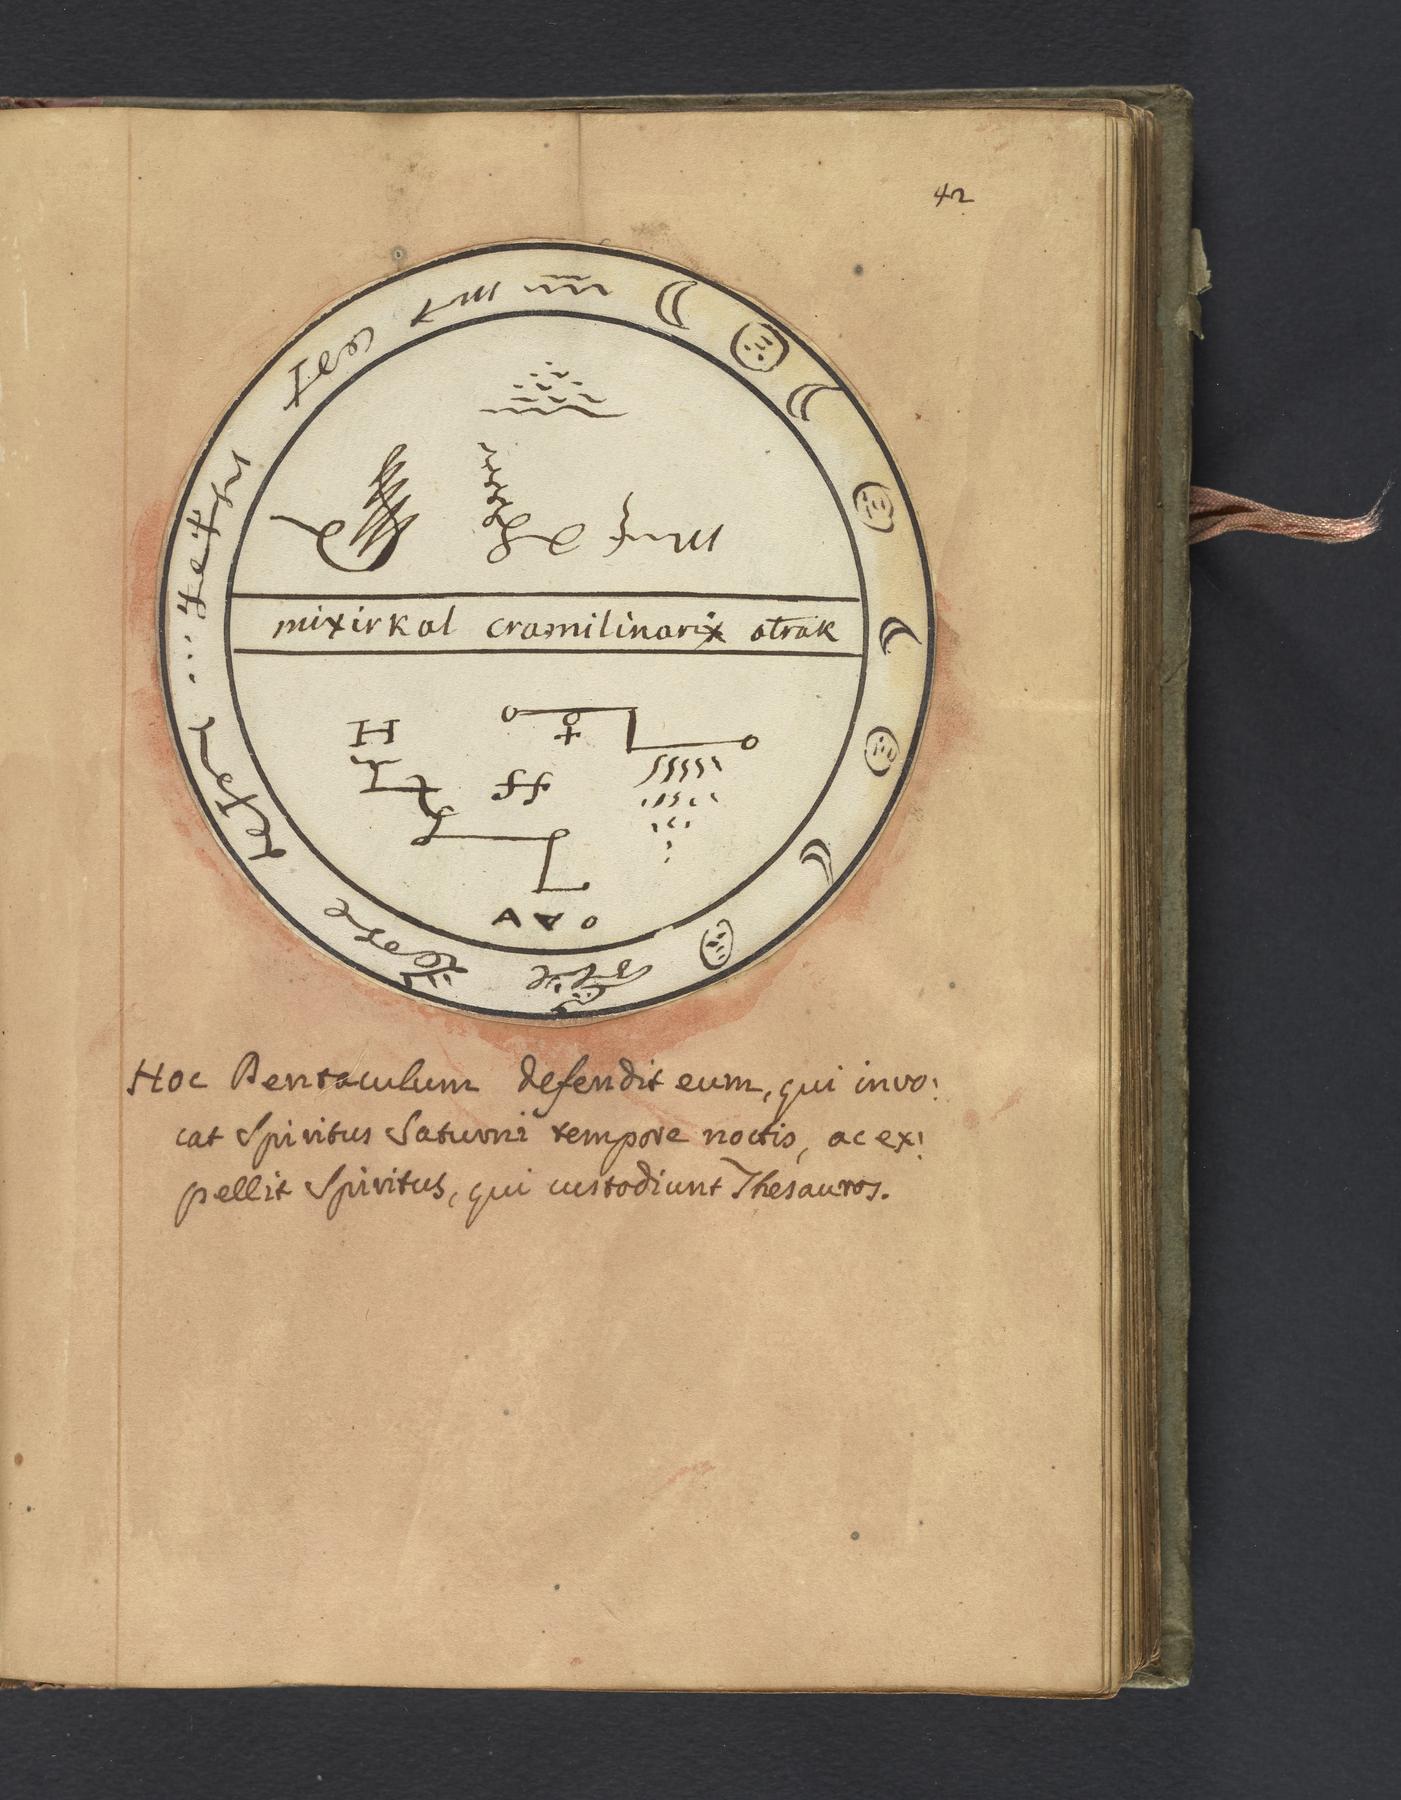 42
mixirkal cramilinarix atrak
H
ff
Hoc Pentaculum defendit eum, qui invo:
cat Spiritus Saturni tempore noctis, ac ex:
pellit Spiritus, qui custodiunt Thesauros.